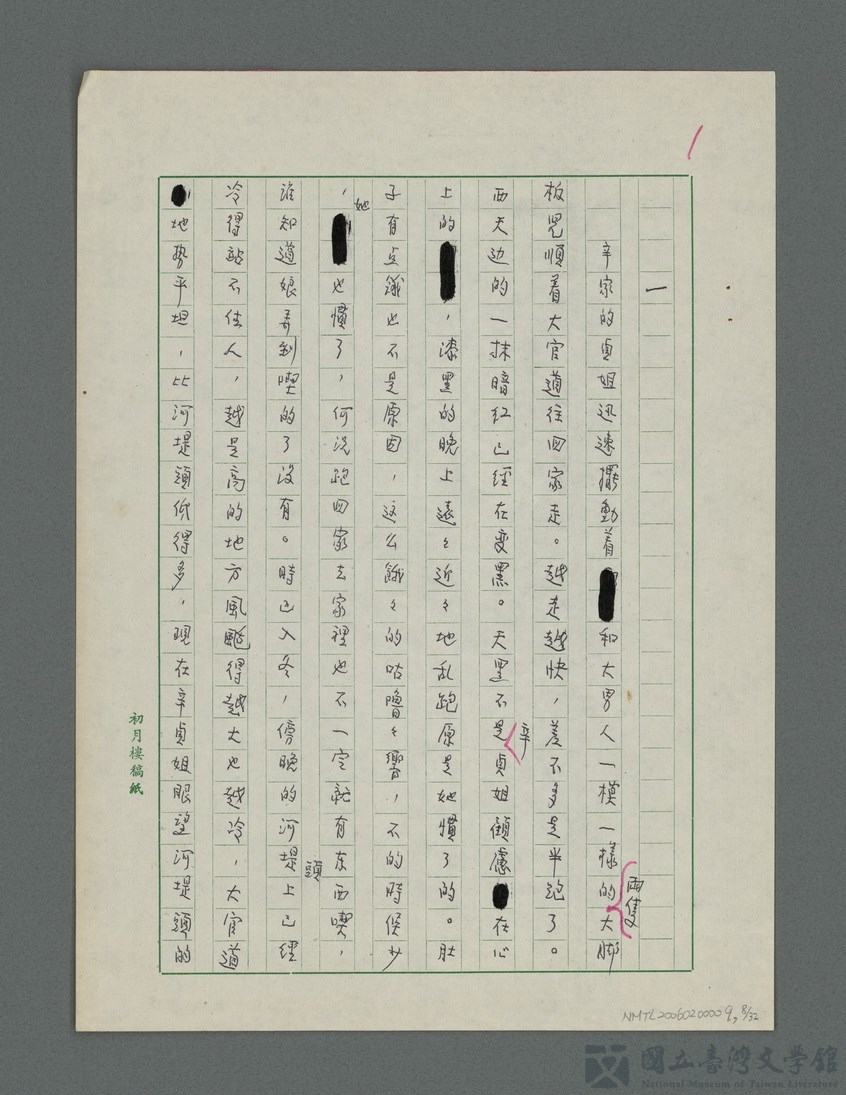 1
一
辛家的貞姐迅速擺動着和大男人一模一樣的兩隻大脚
板兒順着大官道往回家走。越走越快，差不多是半跑了。
西天边的一抹暗红已經在变黑。天黑不是辛貞姐顧慮在心
上的，漆黑的晚上遠々近々地乱跑原是她慣了的。肚
子有点餓也不是原因，这么餓々的咕嚕々響，不的時候少
，她也慣了，何况跑回家去家裡也不一定就有东西喫，
誰知道娘弄到喫的了沒有。時已入冬，傍晚的河堤頭上已經
冷得站不住人，越是高的地方風颳得越大也越冷，大官道
地势平坦，比河堤頭低得多，現在辛貞姐眼望河堤頭的
初月樓稿紙
NMTL20060200009, 8/32
國立臺灣文學館
National Museum of Taiwan Literature